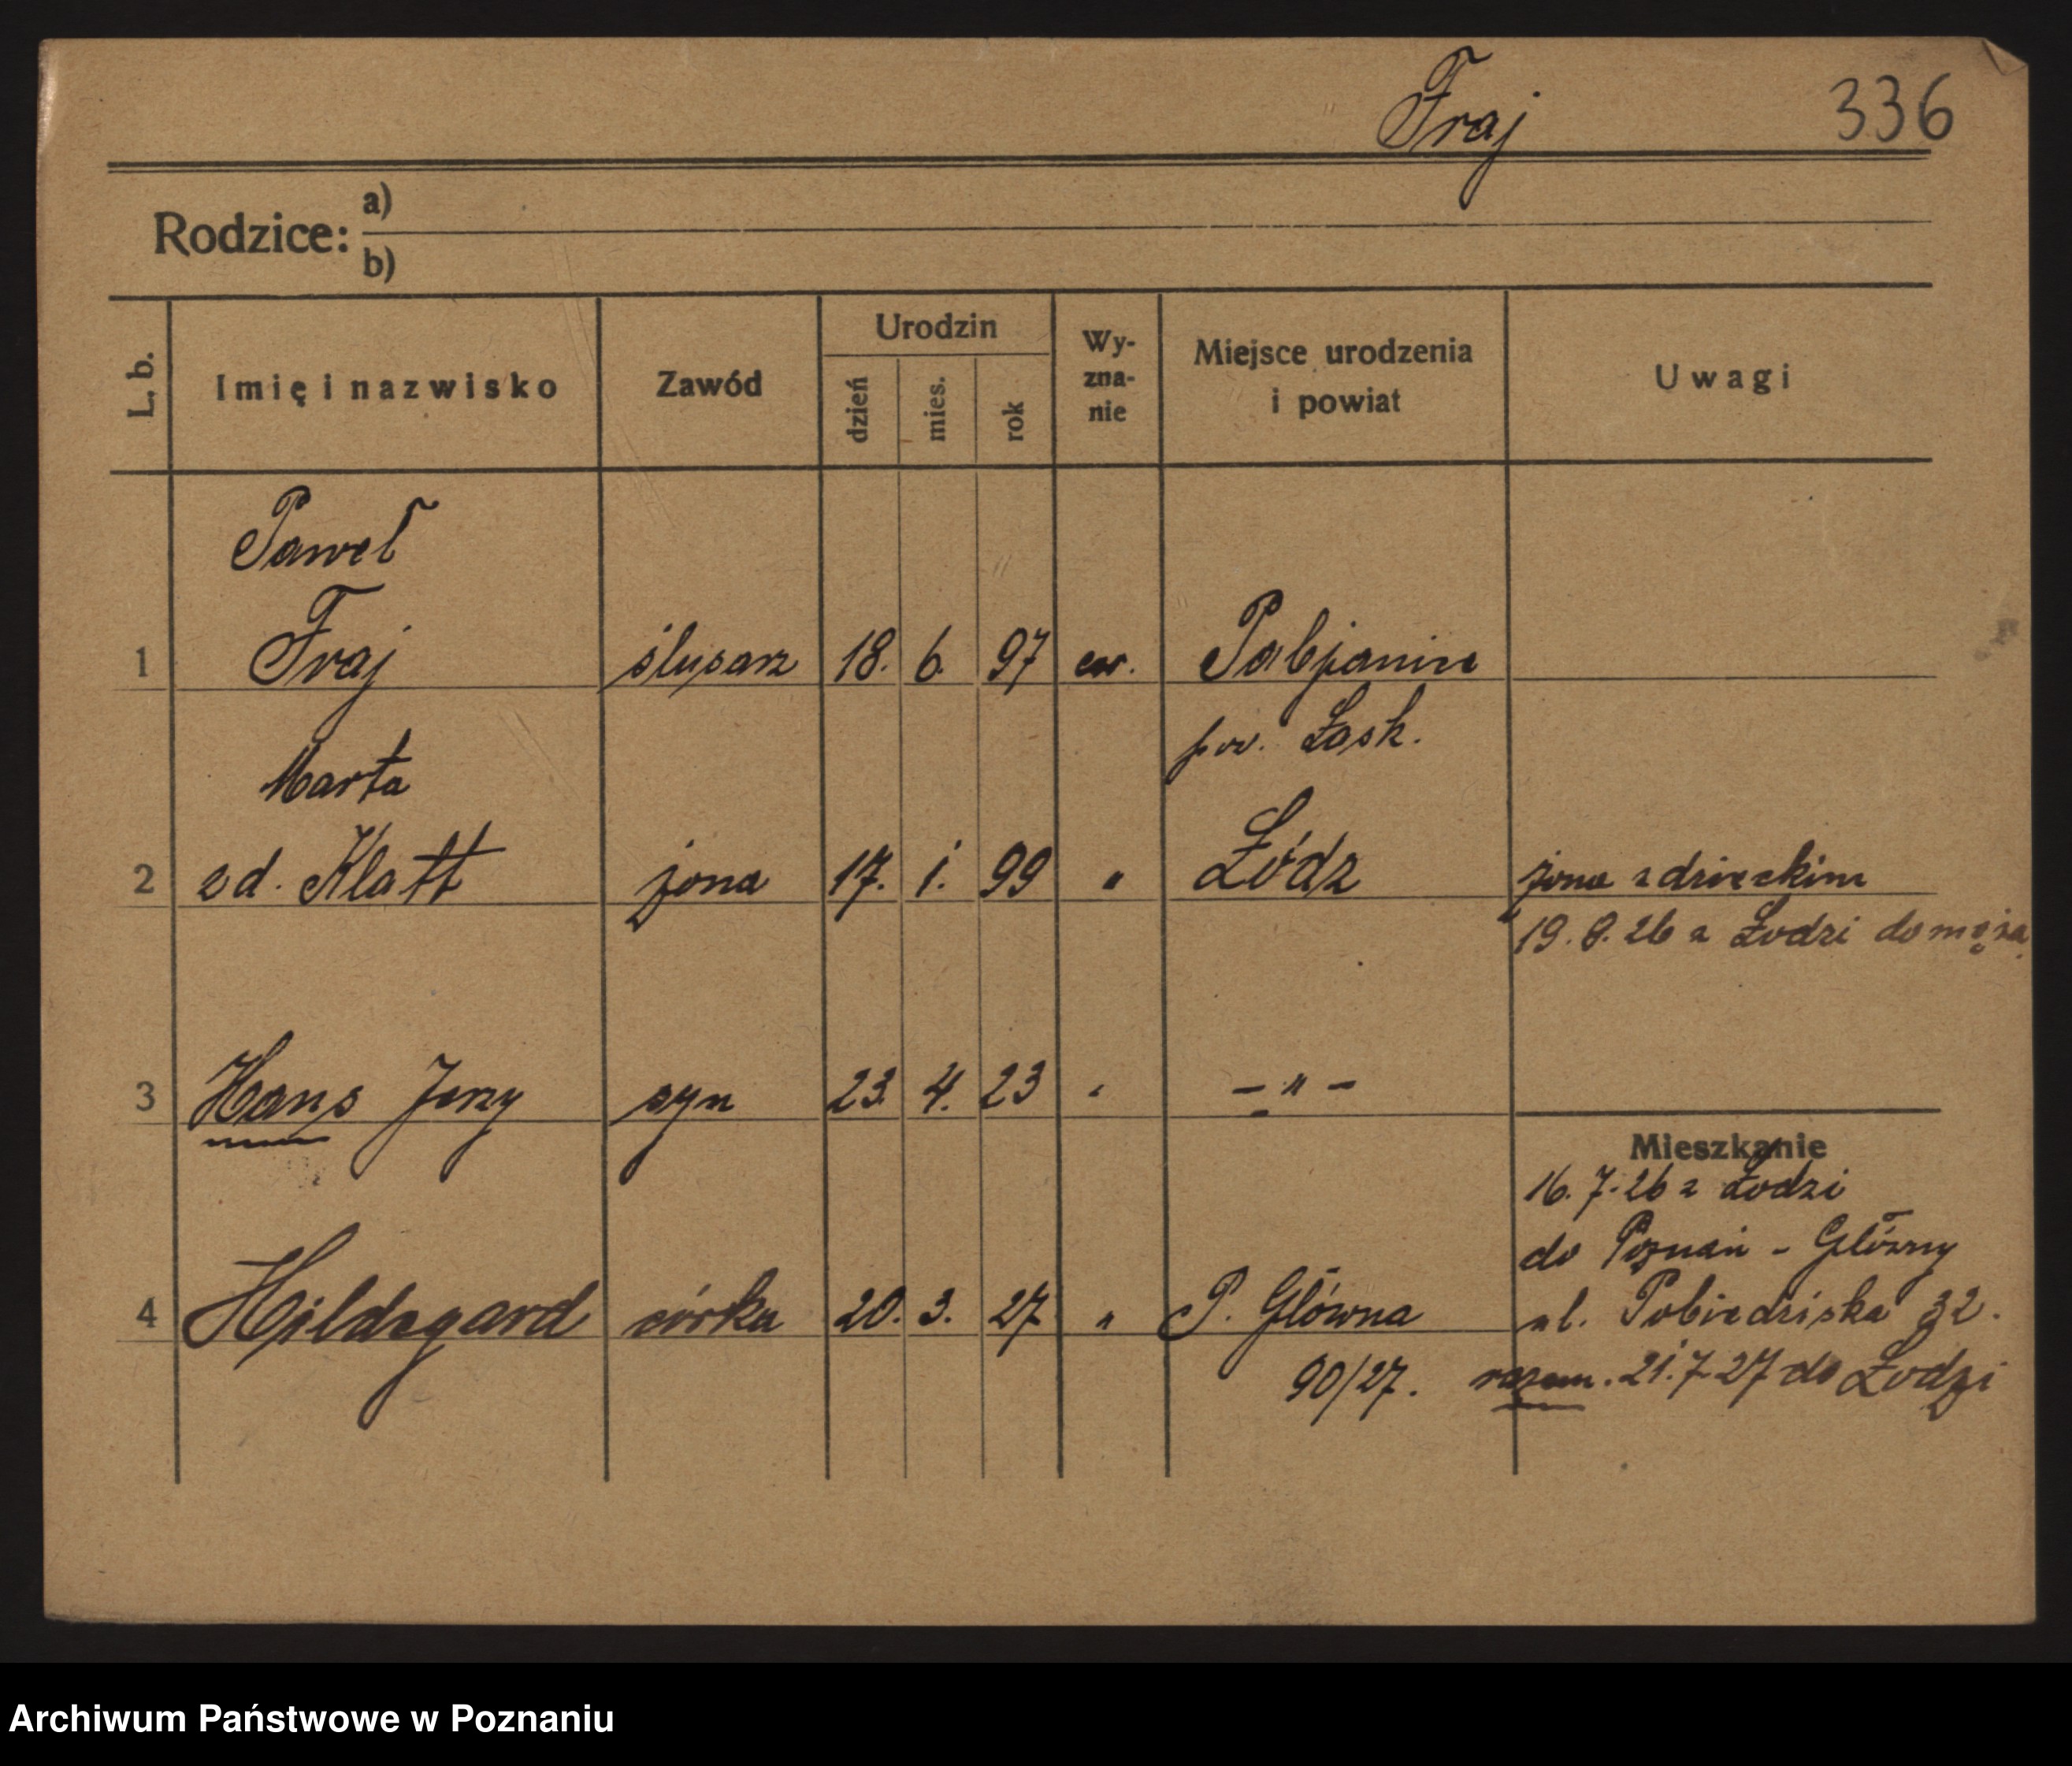 Fraj 336
Rodzice: a)
b)
L. b. Imię i nazwisko Zawód Urodzin dzień mies. rok Wy-zna-nie Miejsce urodzenia i powiat Uwagi
Paweł
1 Fraj ślusarz 18. 6. 97 ew. Pabjanice
pow. Łask.
Marta
2 zd. Klatt żona 17. 1. 99 " Łódz żona z dzieckim
19. 8. 26 z Łodzi do męża
3 Hans Jerzy syn 23. 4. 23 " - " -
Mieszkanie
16. 7. 26 z Łodzi
do Poznań - Główny
4 Hildegard córka 20. 3. 27 " P. Główna ul. Pobiedziska 32.
90/27. razem. 21. 7. 27 do Łodzi
Archiwum Państwowe w Poznaniu